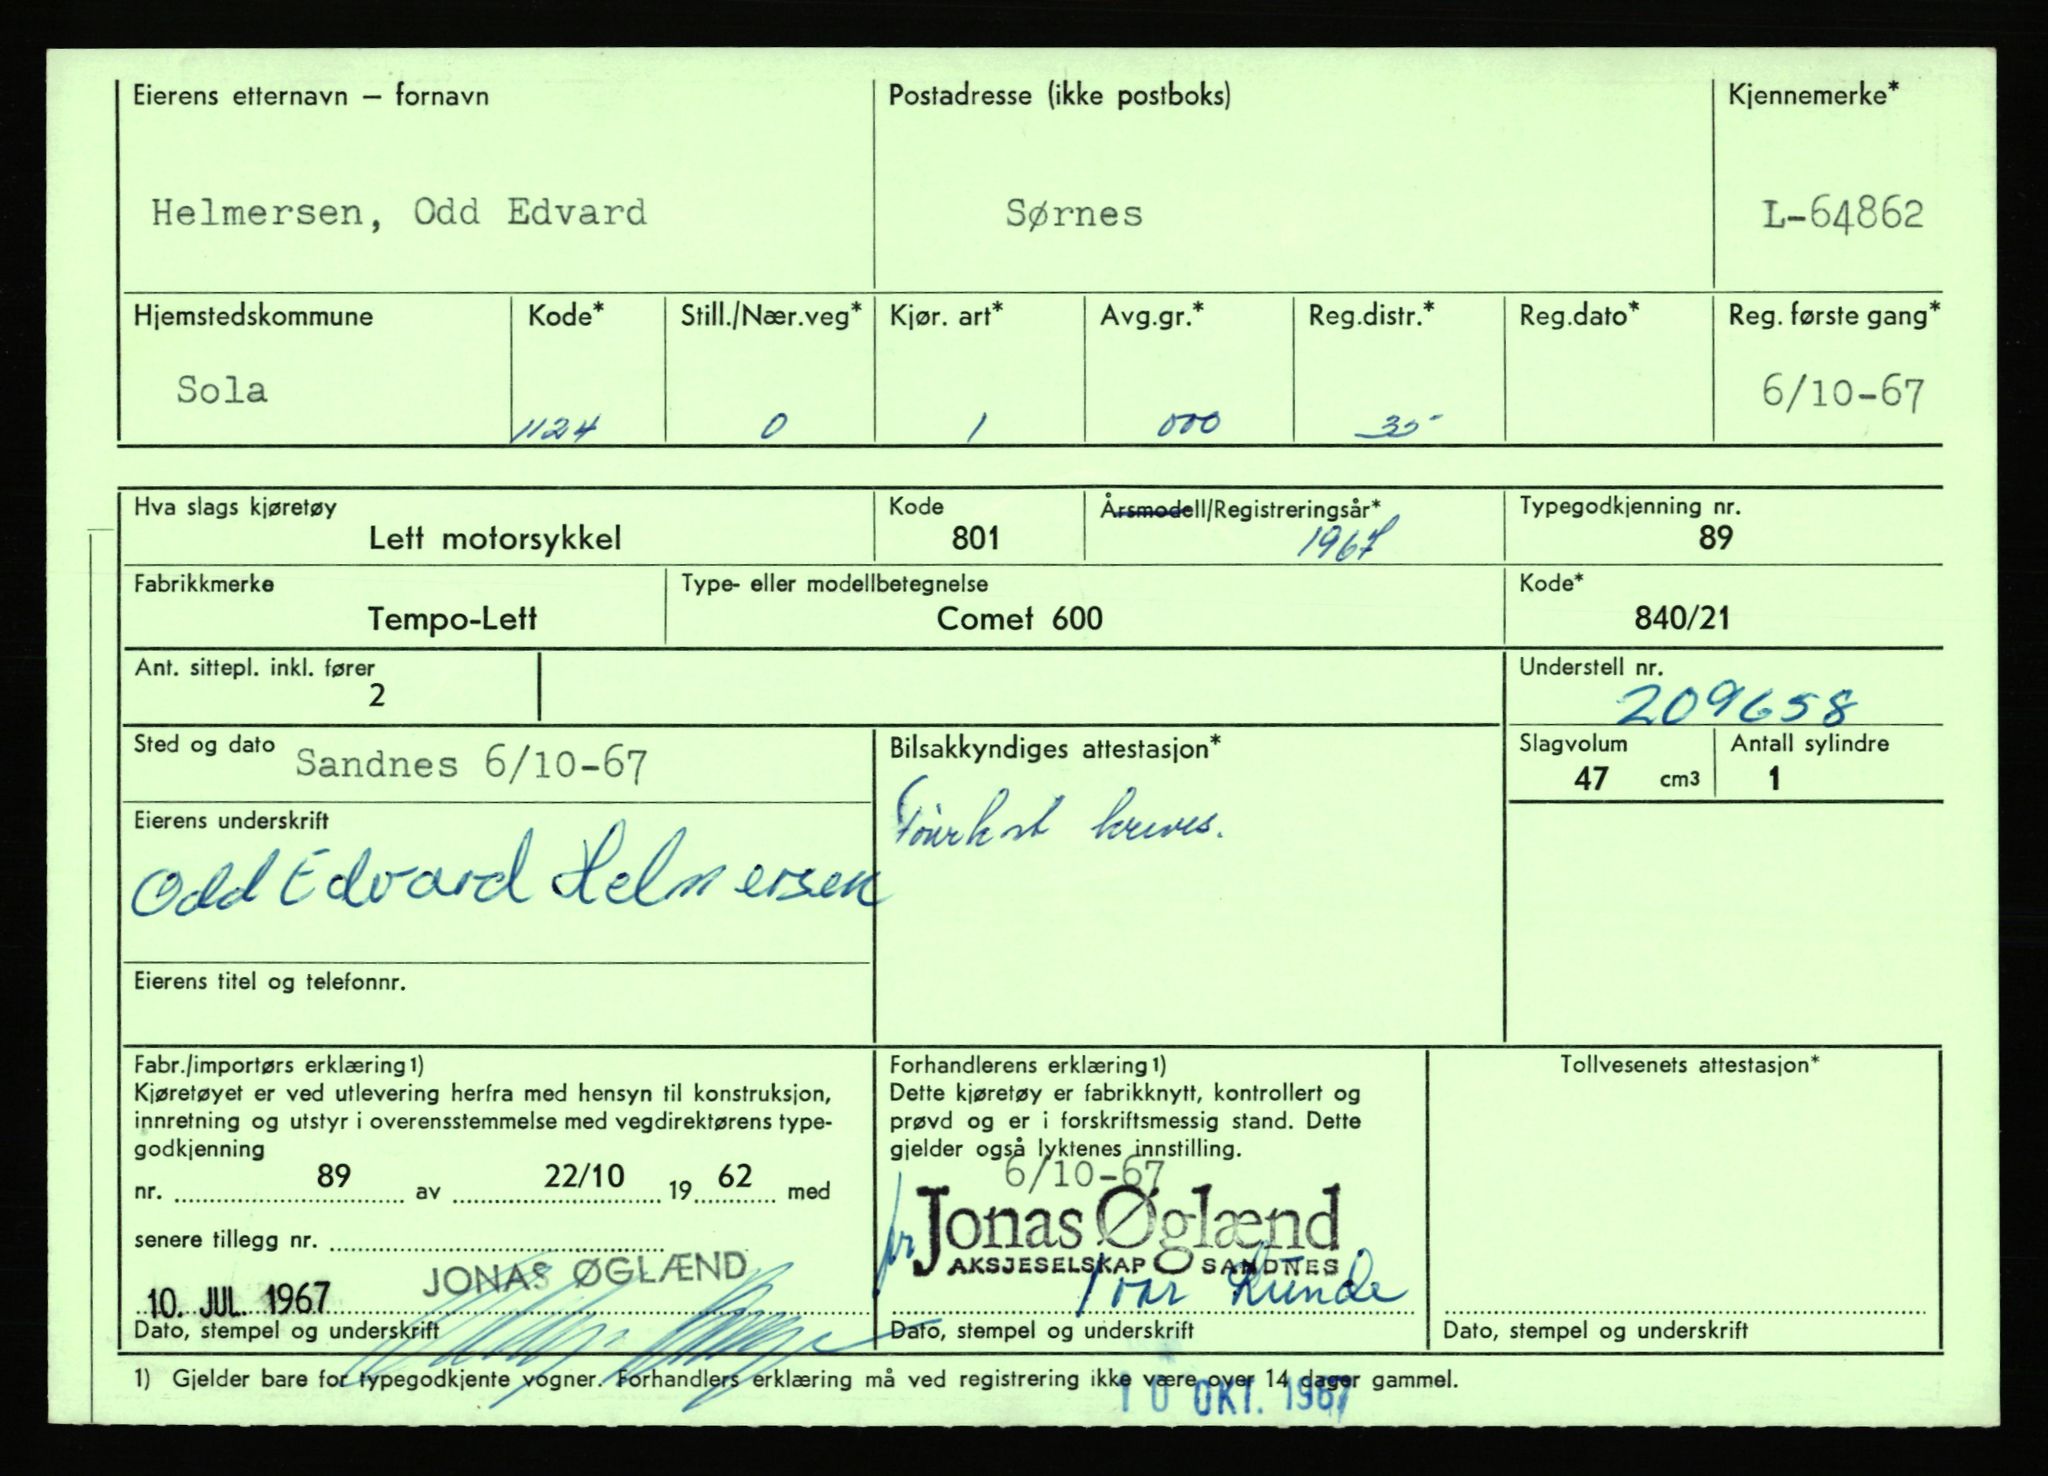 Eierens etternavn – fornavn
Postadresse (ikke postboks)
Kjennemerke*
Helmersen, Odd Edvard
Sørnes
L-64862
Hjemstedskommune
Kode*
Still./Nær.veg*
Kjør. art*
Avg.gr.*
Reg.distr.*
Reg.dato*
Reg. første gang*
Sola
1124
0
1
000
35
6/10-67
Hva slags kjøretøy
Kode
Årsmodell/Registreringsår*
Typegodkjenning nr.
Lett motorsykkel
801
1967
89
Fabrikkmerke
Type- eller modellbetegnelse
Kode*
Tempo-Lett
Comet 600
840/21
Ant. sittepl. inkl. fører
2
Understell nr.
209658
Sted og dato
Sandnes 6/10-67
Bilsakkyndiges attestasjon*
Slagvolum
47 cm3
Antall sylindre
1
Eierens underskrift
Odd Edvard Helmersen
Eierens titel og telefonnr.
Fabr./importørs erklæring 1)
Kjøretøyet er ved utlevering herfra med hensyn til konstruksjon,
innretning og utstyr i overensstemmelse med vegdirektørens type-
godkjenning
nr. 89 av 22/10 19 62 med
senere tillegg nr.
JONAS ØGLÆND
10. JUL. 1967
Dato, stempel og underskrift
Forhandlerens erklæring 1)
Dette kjøretøy er fabrikknytt, kontrollert og
prøvd og er i forskriftsmessig stand. Dette
gjelder også lyktenes innstilling.
6/10-67
pr. Jonas Øglænd
AKSJESELSKAP SANDNES
Ivar Lunde
Dato, stempel og underskrift
Tollvesenets attestasjon*
Dato, stempel og underskrift
1) Gjelder bare for typegodkjente vogner. Forhandlers erklæring må ved registrering ikke være over 14 dager gammel.
10 OKT. 1967